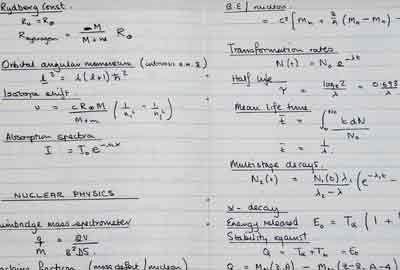 Rydberg Const.
R∞ = R∞
R_Hydrogen = M / (M + m) R∞
Orbital angular momentum
l² = l(l+1)ħ²
Isotope shift.
ν = cR∞M / (M+m) (1/n₁² - 1/n₂²)
Absorption spectra
I = I₀e
NUCLEAR PHYSICS
mass spectrometer
q/M = 2V / B²DS
fraction (mass defect / nucleon)
B.E / nucleon
= c² [Mn + Z/A (MH - Mn) -
Transformation rates
N(t) = N₀ e^-λt
Half life
τ = loge2 / λ = 0.693 / λ
Mean life time
t̄ = ∫₀^N₀ t dN / N₀
t̄ = 1/λ
Multistage decays.
N₂(t) = N₁(0) λ₁ / (λ₂ - λ₁) (e^-λ₁t -
α - decay
Energy released E₀ = Tα (1 +
Stability against
Q = Tα + Tb = E₀
Q = (Z, A) - (Z-2, A-4)